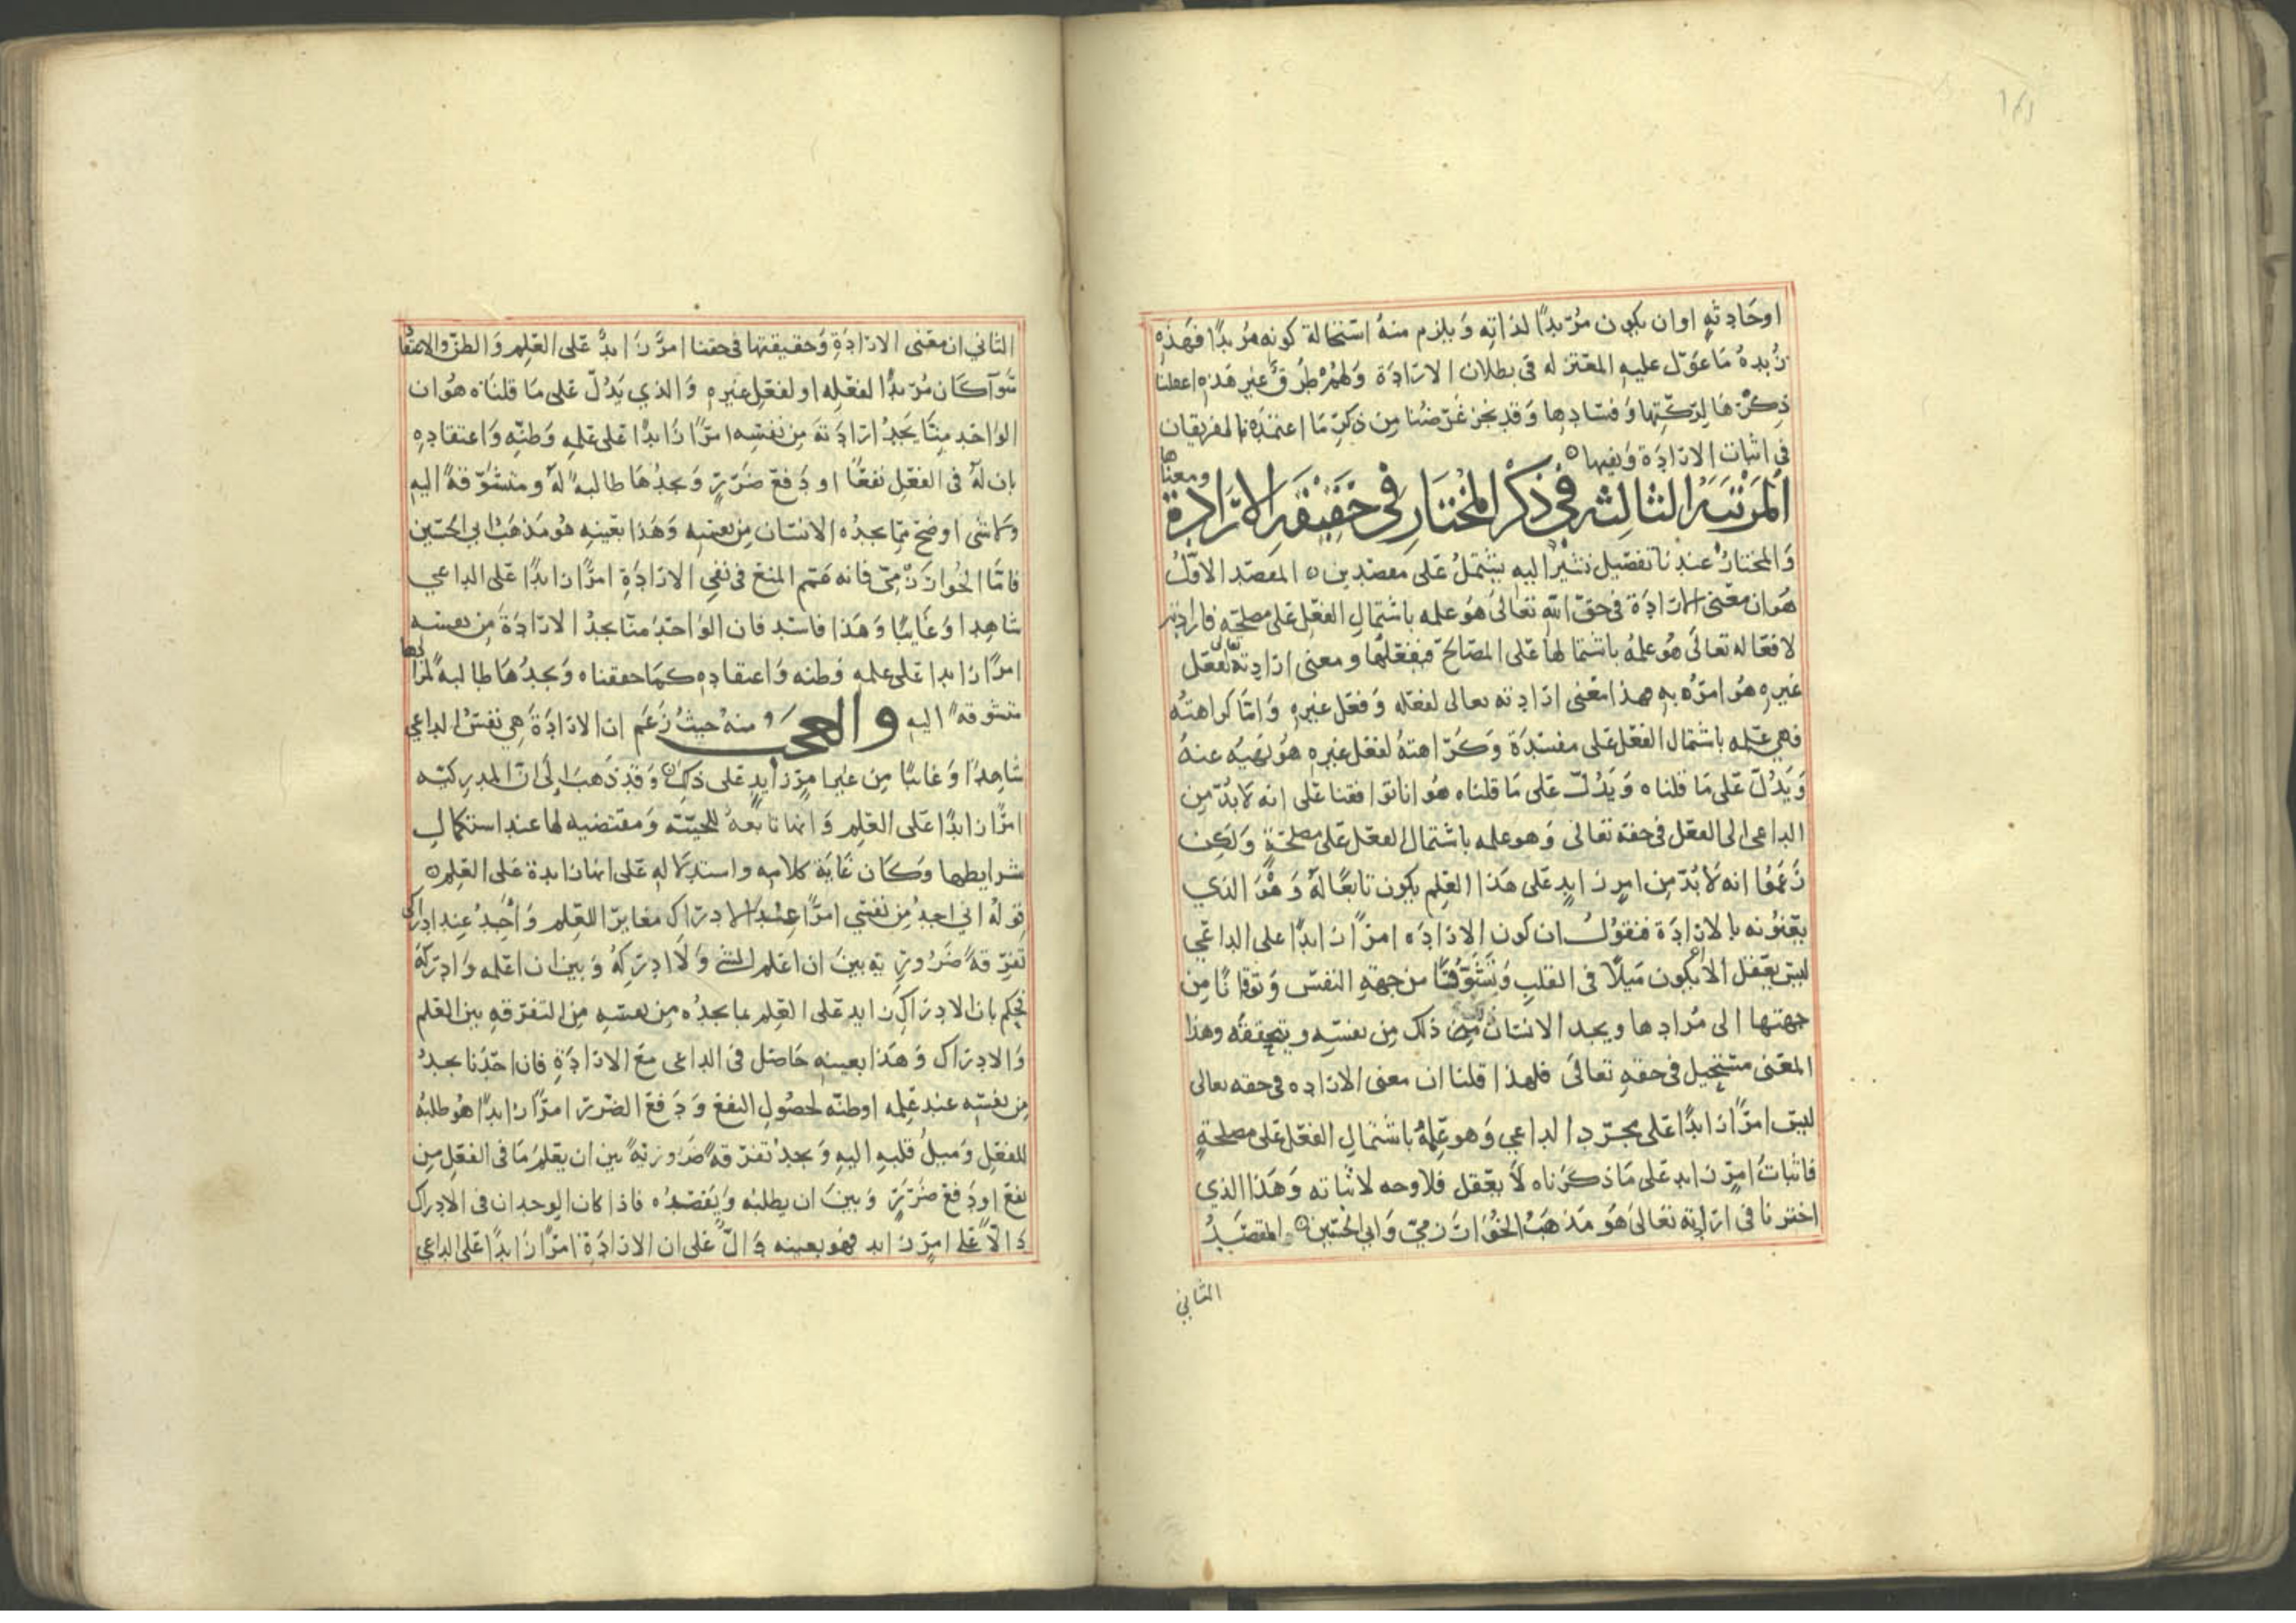 اوحادثه اوان يكون مريدًا لذاته ويلزم منه استحالة كونه مريدًا فهذه
زبدة ما عول عليه المعتزله في بطلان الارادة ولهم طرق غير هذه اغفلنا
ذكرها لركتها وفسادها وقد نجز غرضنا من ذكر ما اعتمده الفريقان
في اثبات الارادة ونفيها
المرتبة الثالثه في ذكر المختار في حقيقة الارادة ومعناها
والمختار عندنا تفصيل نشير اليه يشتمل على مقصدين المقصد الاول
هو ان معنى الارادة في حق الله تعالى هو علمه باشتمال الفعل على مصلحته فارادته
لافعاله تعالى هو علمه باشتمالها على المصالح فيفعلها ومعنى ارادته لفعل
غيره هو امره به فهذا معنى ارادته تعالى لفعله وفعل غيره واما كراهته
فهي علمه باشتمال الفعل على مفسدة وكراهته لفعل غيره هو نهيه عنه
ويدل على ما قلناه ويدل على ما قلناه هو انا توافقنا على انه لا بد من
الداعي الى الفعل في حقه تعالى وهو علمه باشتمال الفعل على مصلحة ولكن
زعموا انه لا بد من امر زايد على هذا العلم يكون تابعًا له وهو الذي
يعنونه بالارادة فنقول ان كون الاراده امرًا زايدًا على الداعي
ليس يعقل الا يكون ميلًا في القلب وتشوقًا من جهة النفس وتوقانًا من
جهتها الى مرادها ويجد الانسان ذلك من نفسه ويتحققه وهذا
المعنى مستحيل في حقه تعالى فلهذا قلنا ان معنى الاراده في حقه تعالى
ليس امرًا زايدًا على مجرد الداعي وهو علمه باشتمال الفعل على مصلحة
فاثبات امر زايد على ما ذكرناه لا يعقل فلا وجه لاثباته وهذا الذي
اخترنا في ارادته تعالى هو مذهب الخوارزمي وابي الحسين المقصد
الثاني
الثاني ان معنى الارادة وحقيقتها في حقنا امر زايد على العلم والظن والاعتقاد
سوآ كان مريدًا لفعله او لفعل غيره والذي يدل على ما قلناه هو ان
الواحد منا يجد ارادته من نفسه امرًا زايدًا على علمه وظنه واعتقاده
بان له في الفعل نفعًا او دفع ضرر ويجدها طالبة له ومتشوقة اليه
ولا شى اوضح مما يجده الانسان من نفسه وهذا بعينه هو مذهب ابي الحسين
فاما الخوارزمي فانه عمم المنع في نفي الارادة امرًا زايدًا على الداعي
شاهدا وغايبا وهذا فاسد فان الواحد منا يجد الارادة من نفسه
امرًا زايدا على علمه وظنه واعتقاده كما حققناه ويجدها طالبة لمرادها
متشوقة اليه والعجب منه حيث زعم ان الارادة هي نفس الداعي
شاهدًا وغائبًا من غير امر زايد على ذلك وقد ذهب الى ان المدركيه
امرًا زايدًا على العلم وانها تابعة للحييه ومقتضيه لها عند استكمال
شرايطها وكان غاية كلامه واستدلاله على انها زايدة على العلم
قوله اني اجد من نفسي امرًا عند الادراك مغايرًا للعلم واجد عند ادراكي
تفرقة ضرورية بين ان اعلم الشي ولا ادركه وبين ان اعلمه وادركه
فحكم بان الادراك زايد على العلم بما يجده من نفسه من التفرقه بين العلم
والادراك وهذا بعينه حاصل في الداعي مع الارادة فان احدنا يجد
من نفسه عند علمه او ظنه لحصول النفع ودفع الضرر امرًا زايدًا هو طلبه
للفعل وميل قلبه اليه ويجد تفرقة ضرورية بين ان يعلم ما في الفعل من
نفع او دفع ضرر وبين ان يطلبه ويقصده فاذا كان الوجدان في الادراك
دالًا على امر زايد فهو بعينه دال على ان الارادة امرًا زايدًا على الداعي